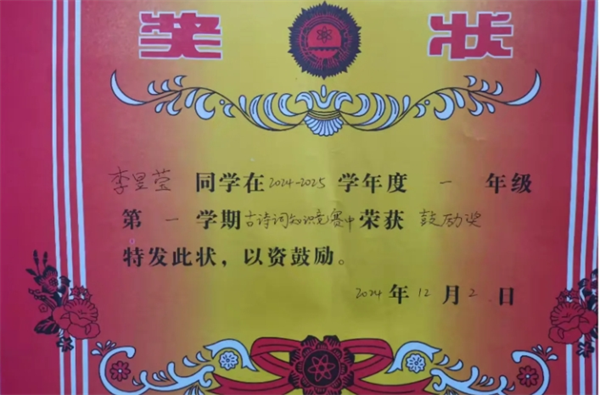 奖状
李昱莹 同学在2024-2025学年度一年级
第一学期古诗词知识竞赛中荣获鼓励奖
特发此状，以资鼓励。
2024年12月2日